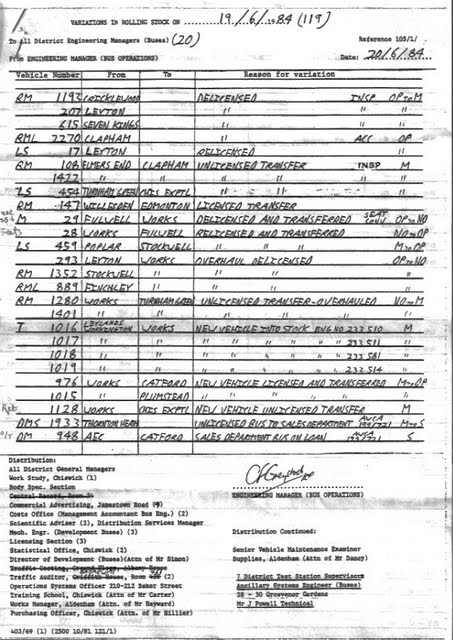 VARIATIONS IN ROLLING STOCK ON 19/6/1984 (119)
To All District Engineering Managers (Buses) (20) Reference 105/1/
From ENGINEERING MANAGER (BUS OPERATIONS) Date: 20/6/84
Vehicle Number From To Reason for variation
RM 1193 CRICKLEWOOD DELICENSED INSP OP to M
207 LEYTON " " "
615 SEVEN KINGS " " "
RML 2270 CLAPHAM " ACC OP
LS 17 LEYTON RELICENSED "
RM 108 ELMERS END CLAPHAM UNLICENSED TRANSFER INSP M
1422 " " " " " "
LS 454 TURNHAM GREEN CHIS EXPTL " " "
RM 147 WILLESDEN EDMONTON LICENSED TRANSFER
M 29 FULWELL WORKS DELICENSED AND TRANSFERRED SEAT CONV OP to NO
Seats 28 WORKS FULWELL RELICENSED AND TRANSFERRED NO to OP
LS 459 POPLAR STOCKWELL " " " M to OP
293 LEYTON WORKS OVERHAUL DELICENSED OP to NO
RM 1352 STOCKWELL " " " "
RML 889 FINCHLEY " " " "
RM 1280 WORKS TURNHAM GREEN UNLICENSED TRANSFER-OVERHAULED NO to M
1401 " " " " " "
T 1016 LEYLANDS WORKINGTON WORKS NEW VEHICLE INTO STOCK ENG NO 233510 M
1017 " " " " " " " 233511 "
1018 " " " " " " " 233581 "
1019 " " " " " " " 233514 "
976 WORKS CATFORD NEW VEHICLE LICENSED AND TRANSFERRED M to OP
1015 " PLUMSTEAD " " " " " "
1128 WORKS CHIS EXPTL NEW VEHICLE UNLICENSED TRANSFER M
DMS 1933 THORNTON HEATH UNLICENSED BUS TO SALES DEPARTMENT M to S
O/T DM 948 AEC CATFORD SALES DEPARTMENT BUS ON LOAN S
Distribution:
All District General Managers
Work Study, Chiswick (1)
Body Spec. Section
Central Record, Room
Commercial Advertising, Jamestown Road
Costs Office (Management Accountant Bus Eng.) (2)
Scientific Adviser (2), Distribution Services Manager
Mech. Engr. (Development Buses) (3)
Licensing Section (3)
Statistical Office, Chiswick (2)
Director of Development (Buses)(Attn of Mr Simon)
Traffic Auditor, Griffith House, Room (2)
Operations Systems Officer 210-212 Baker Street
Training School, Chiswick (Attn of Mr Carter)
Works Manager, Aldenham (Attn of Mr Hayward)
Purchasing Officer, Chiswick (Attn of Mr Hillier)
403/69 (1) (2500 10/81 121/1)
ENGINEERING MANAGER (BUS OPERATIONS)
Distribution Continued:
Senior Vehicle Maintenance Examiner
Supplies, Aldenham (Attn of Mr Dancy)
7 District Test Station Supervisors
Ancillary Systems Engineer (Buses)
28 - 30 Grosvenor Gardens
Mr J Powell Technical